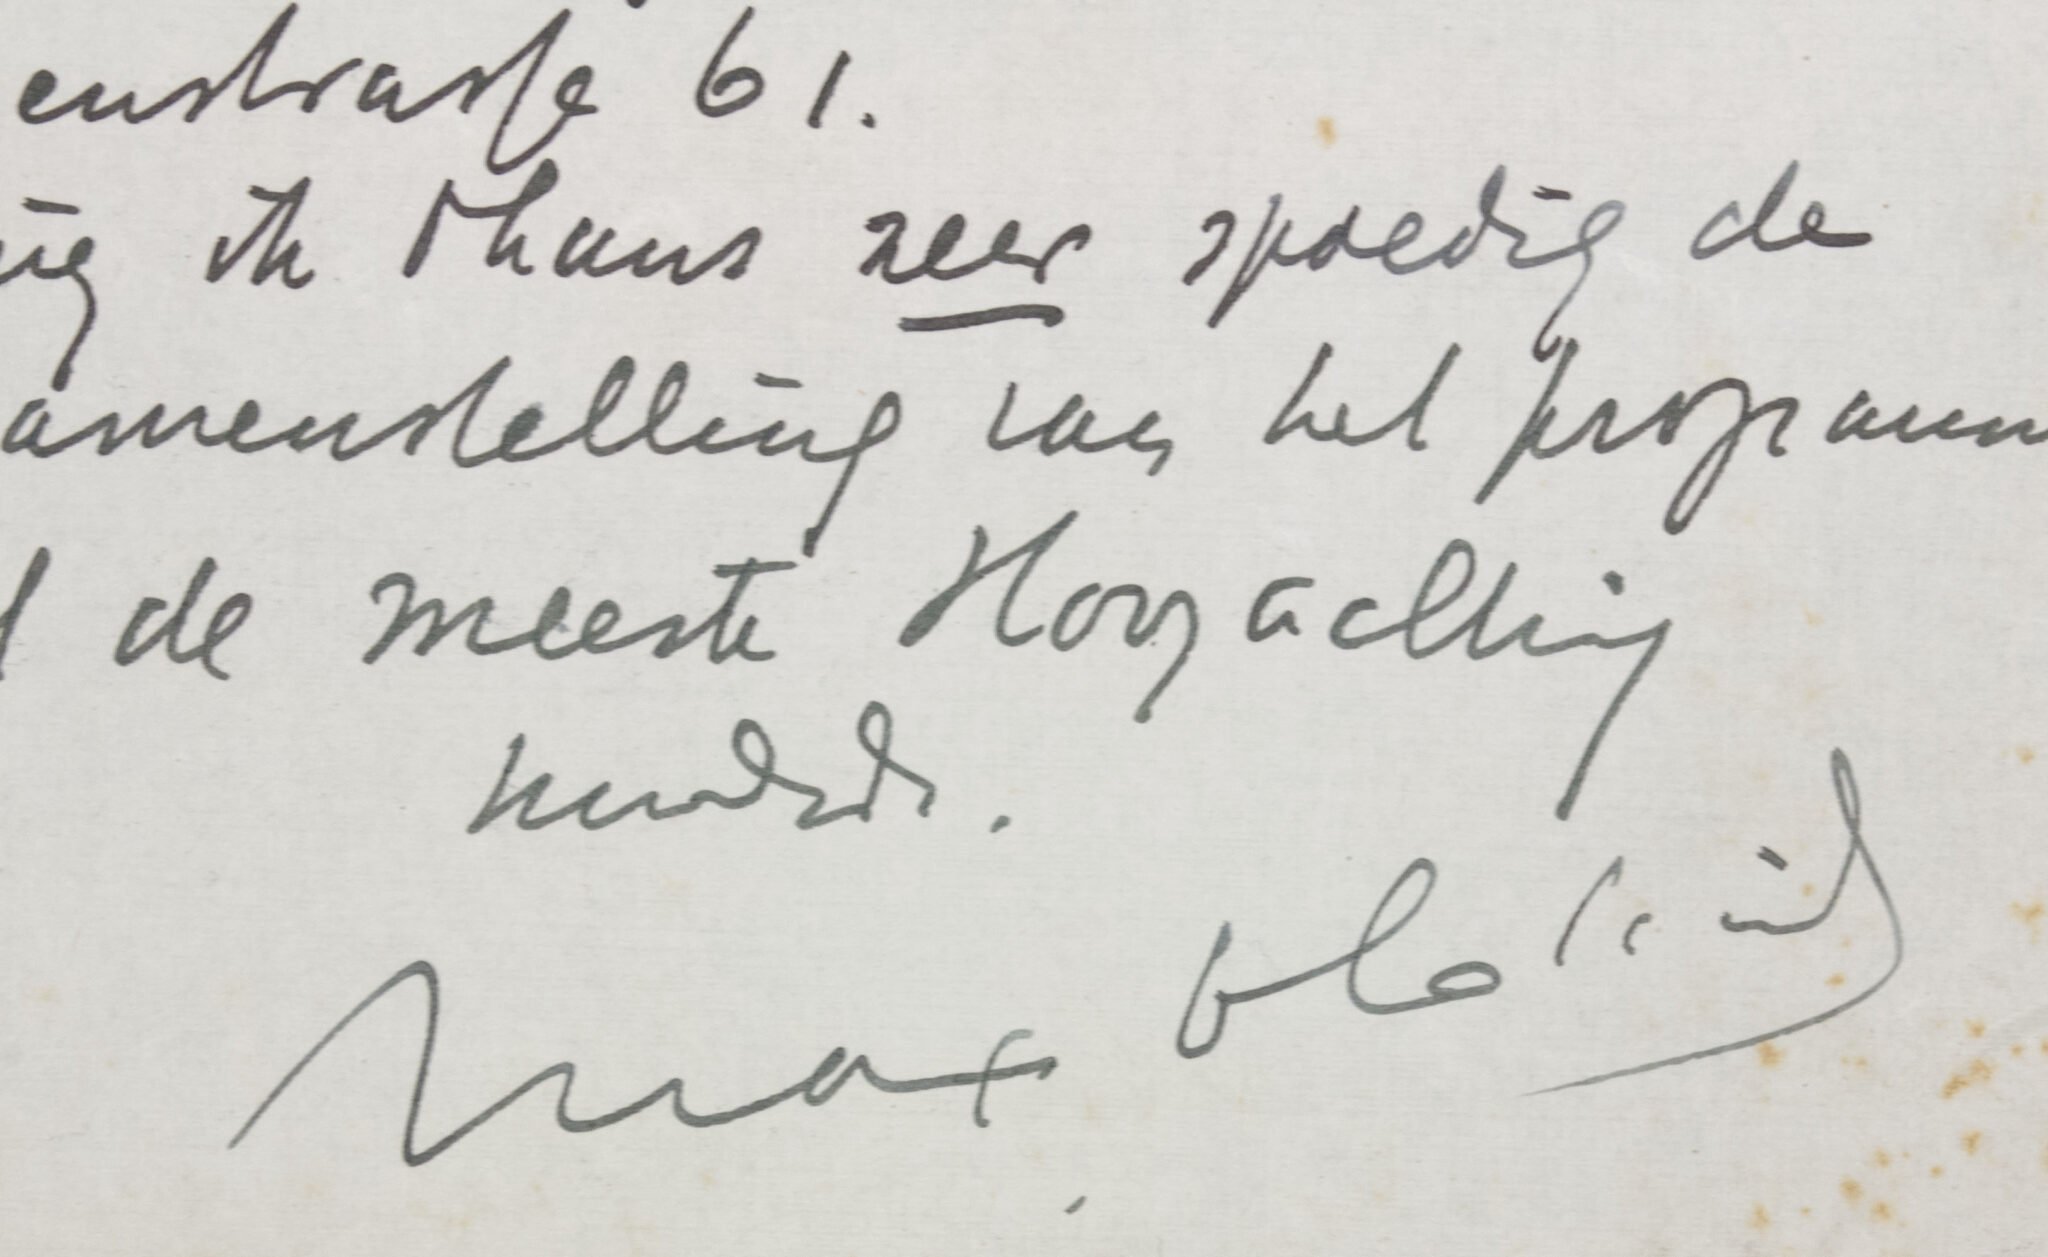 enstrasse 61.
ik thans zeer spoedig de
amenstelling van het programm
de meeste Hoogachting
Max